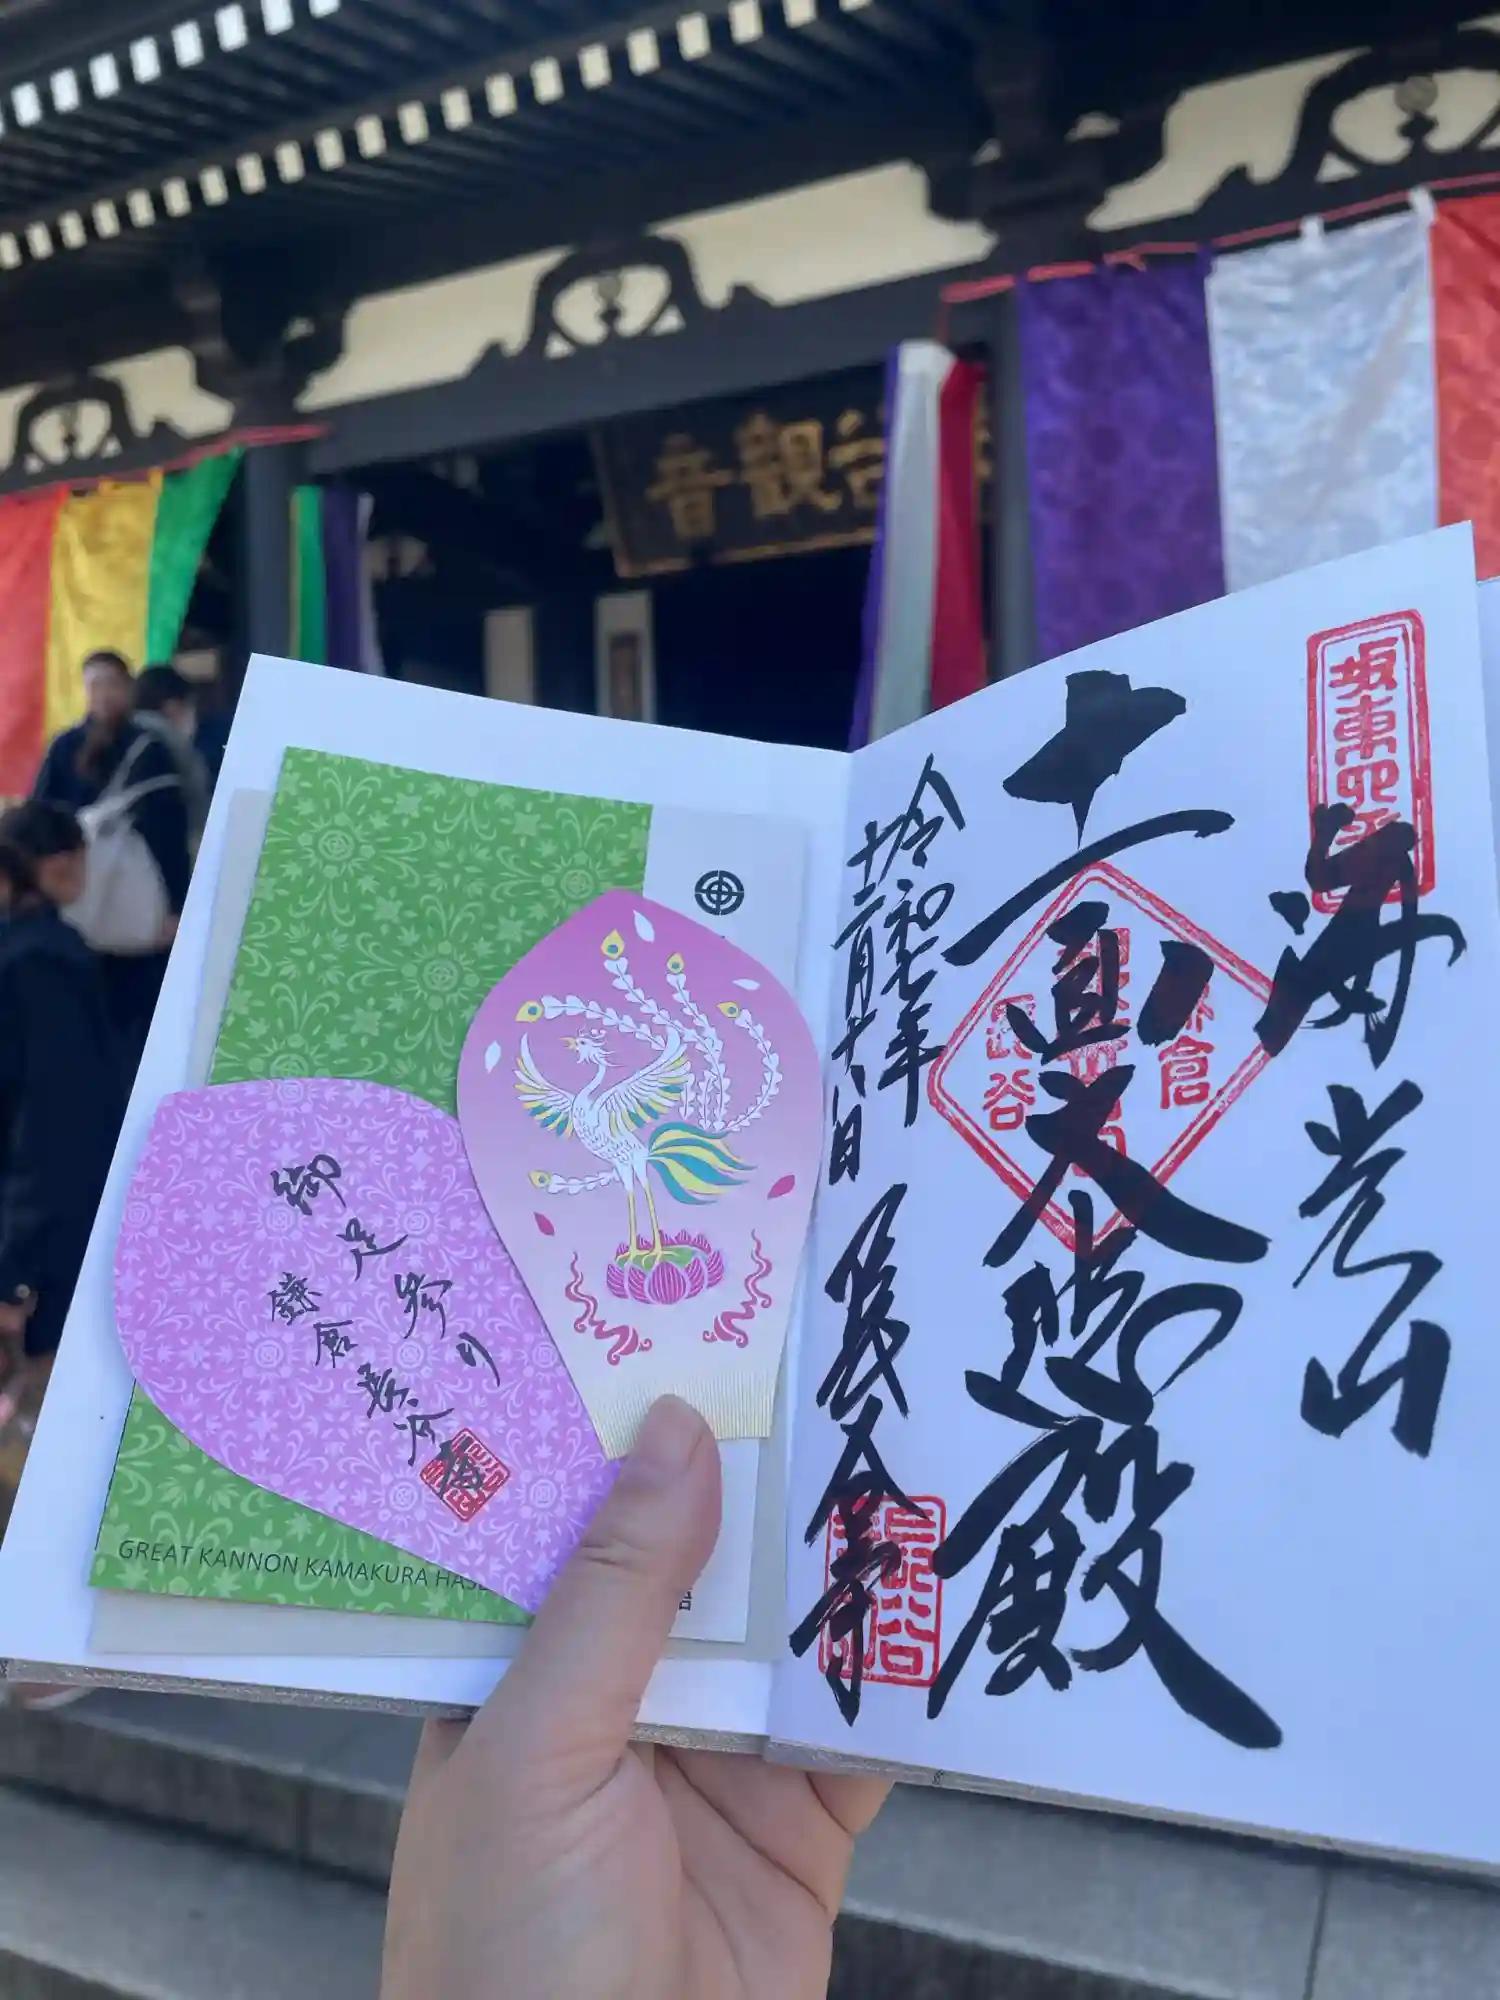 音觀台
坂東四番
海光山
十一面大悲殿
鎌倉
長谷
令和七年
十二月十八日
長谷寺
御足参り
鎌倉長谷
GREAT KANNON KAMAKURA HASE